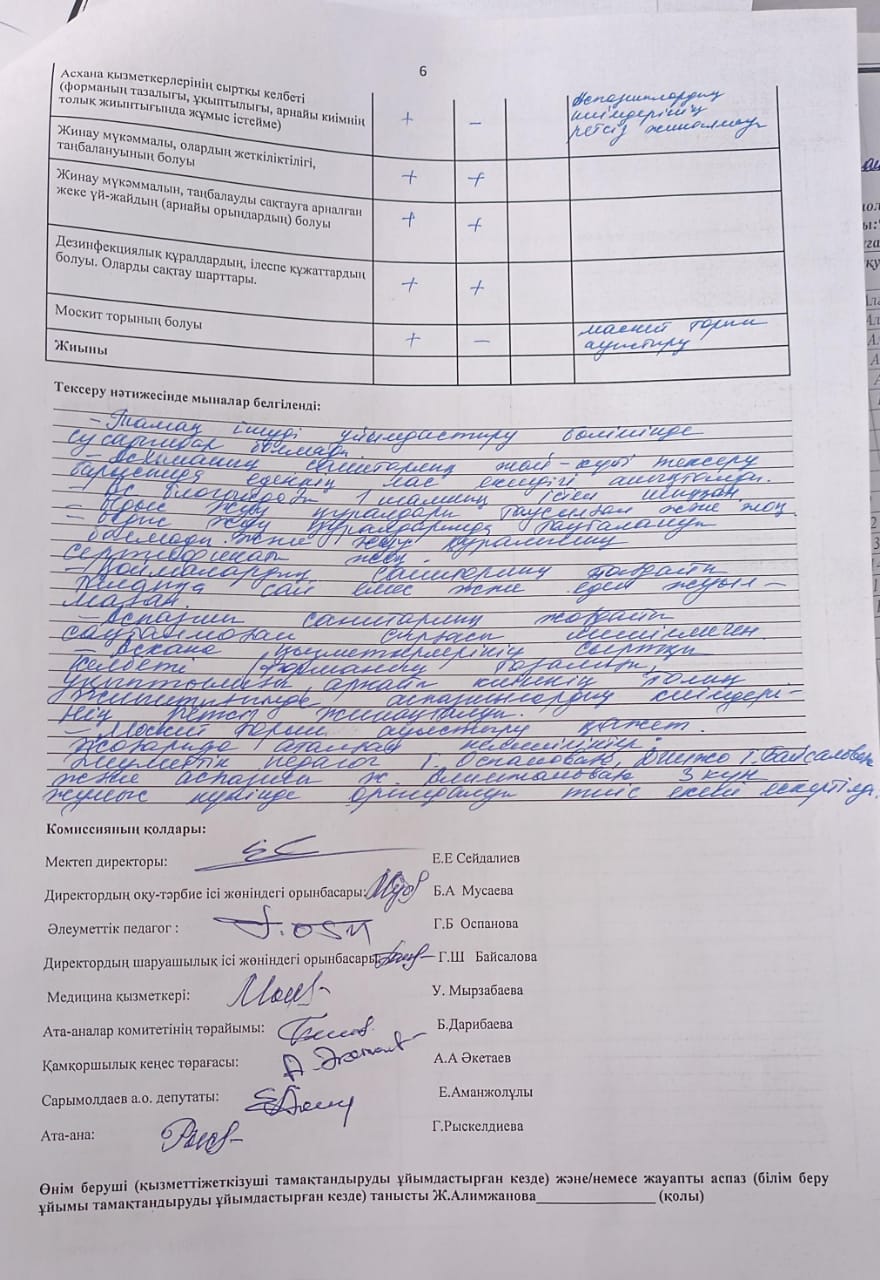 6
Асхана қызметкерлерінің сыртқы келбеті
(форманың тазалығы, ұқыптылығы, арнайы киімнің
толық жиынтығында жұмыс істейме)
+ −
аспазшылардың
киімдерінің
ретсіз жиналмау
Жинау мүкәммалы, олардың жеткіліктілігі,
таңбалануының болуы
+ +
Жинау мүкәммалын, таңбалауды сақтауга арналған
жеке үй-жайдың (арнайы орындардың) болуы
+ +
Дезинфекциялық құралдардың, ілеспе құжаттардың
болуы. Оларды сақтау шарттары.
+ +
Москит торының болуы
+ −
маскит торын
ауыстыру
Жиыны
Тексеру нәтижесінде мыналар белгіленді:
- Тамақ ішуді ұйымдастыру бөлімінде
сусындар болмады.
- Асхананың санитарлық жай-күйі тексеру
барысында еденнің лас екендігі анықталды.
- Ас блогындағы 1 шамның істен шыққан.
- Ыдыс жуу құралдары таусылған және жоқ.
- Ыдыс жуу құралдарында таңбалануы
болмады және жуу құралының
сертификат жоқ.
- Қоймалардың санитарлық жағдайы
талапқа сай емес және еден жуыл-
маған.
- Аспазшы санитарлық жағдайы
сақталмаған сырғасы шешілмеген.
- Асхана қызметкерлерінің сыртқы
келбеті форманың тазалығы,
ұқыптылығы, арнайы киімнің толық
жиынтығында аспазшылардың киімдері-
нің ретсіз жинақталуы.
- Москит торын ауыстыру қажет.
Жоғарыда аталған кемшіліктер
әлеуметтік педагог Г. Оспановаға, Г. Байсаловаға
және аспазшы Ж. Алимжановаға 3 күн
жұмыс күнінде орындалуы тиіс екені ескертілді.
Комиссияның қолдары:
Мектеп директоры: Е.Е Сейдалиев
Директордың оқу-тәрбие ісі жөніндегі орынбасары: Б.А Мусаева
Әлеуметтік педагог : Г.Б Оспанова
Директордың шаруашылық ісі жөніндегі орынбасары: Г.Ш Байсалова
Медицина қызметкері: У. Мырзабаева
Ата-аналар комитетінің төрайымы: Б.Дарибаева
Қамқоршылық кеңес төрағасы: А.А Әкетаев
Сарымолдаев а.о. депутаты: Е.Аманжолұлы
Ата-ана: Г.Рыскелдиева
Өнім беруші (қызметтіжеткізуші тамақтандыруды ұйымдастырған кезде) және/немесе жауапты аспаз (білім беру
ұйымы тамақтандыруды ұйымдастырған кезде) танысты Ж.Алимжанова________________ (қолы)